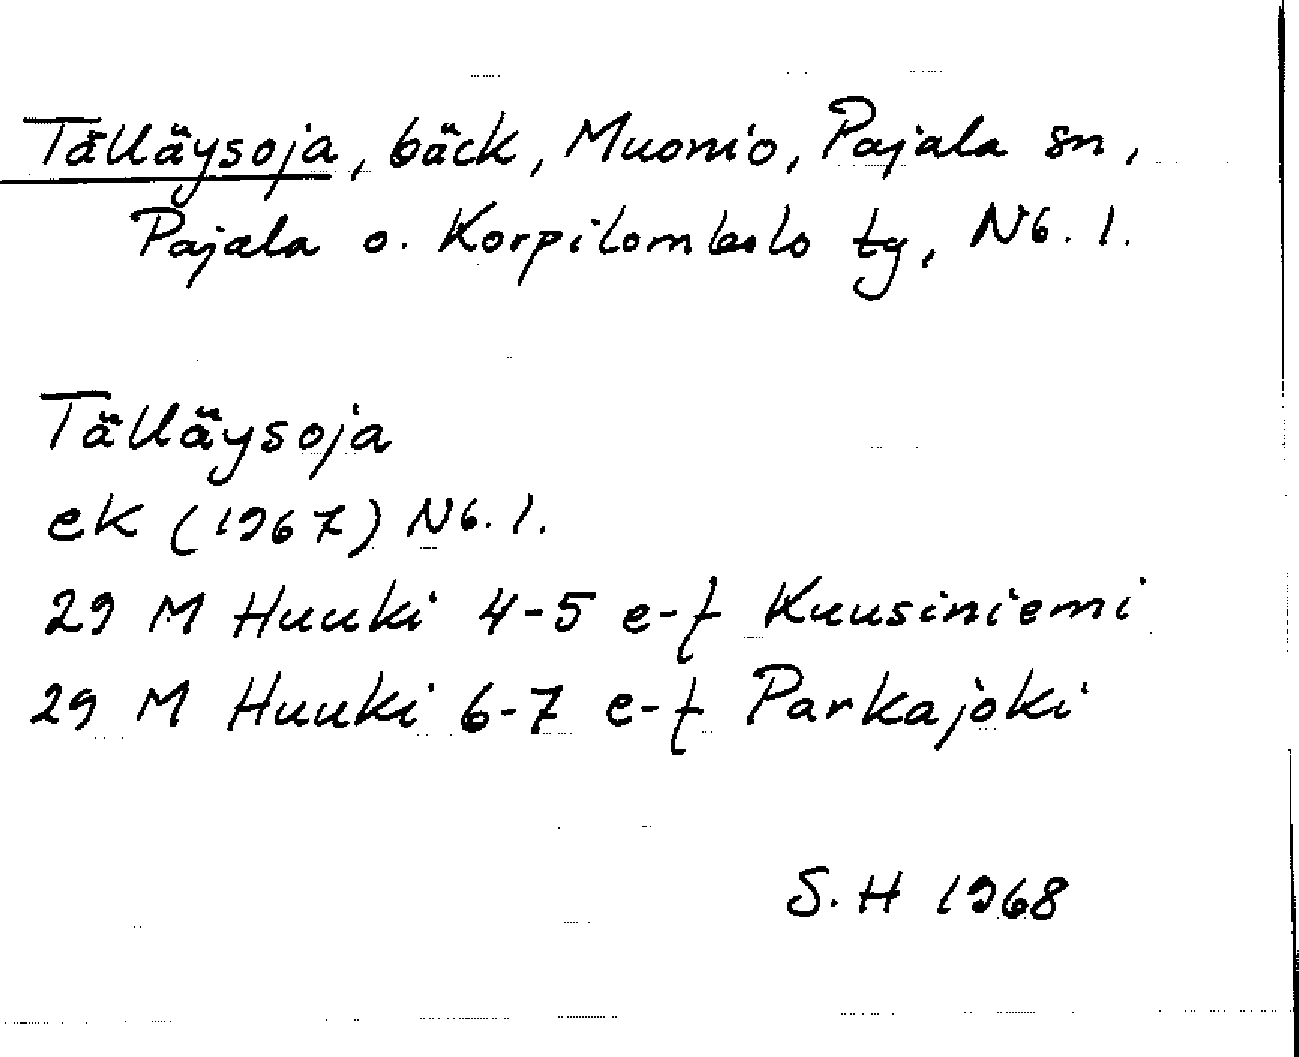 Tälläysoja, bäck, Muonio, Pajala sn,
Pajala o. Korpilombolo tg, Nb. l.
Tälläysoja
ek (1967) Nb. l.
29 M Huuki 4-5 e-f Kuusiniemi
29 M Huuki 6-7 e-f Parkajoki
S. H 1968